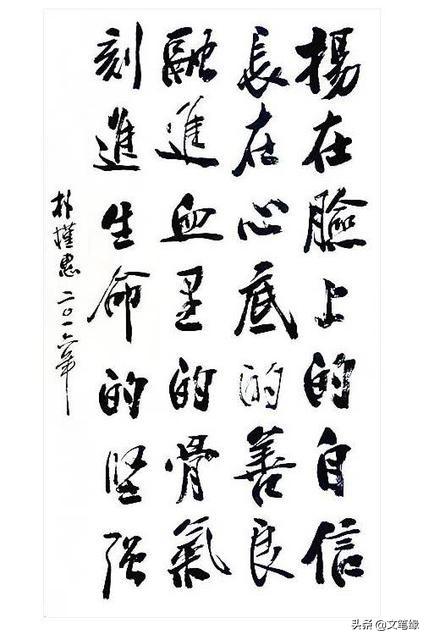 揚在臉上的自信
長在心底的善良
融進血里的骨氣
刻進生命的坚强
朴槿惠二〇一六年
头条 @文笔缘